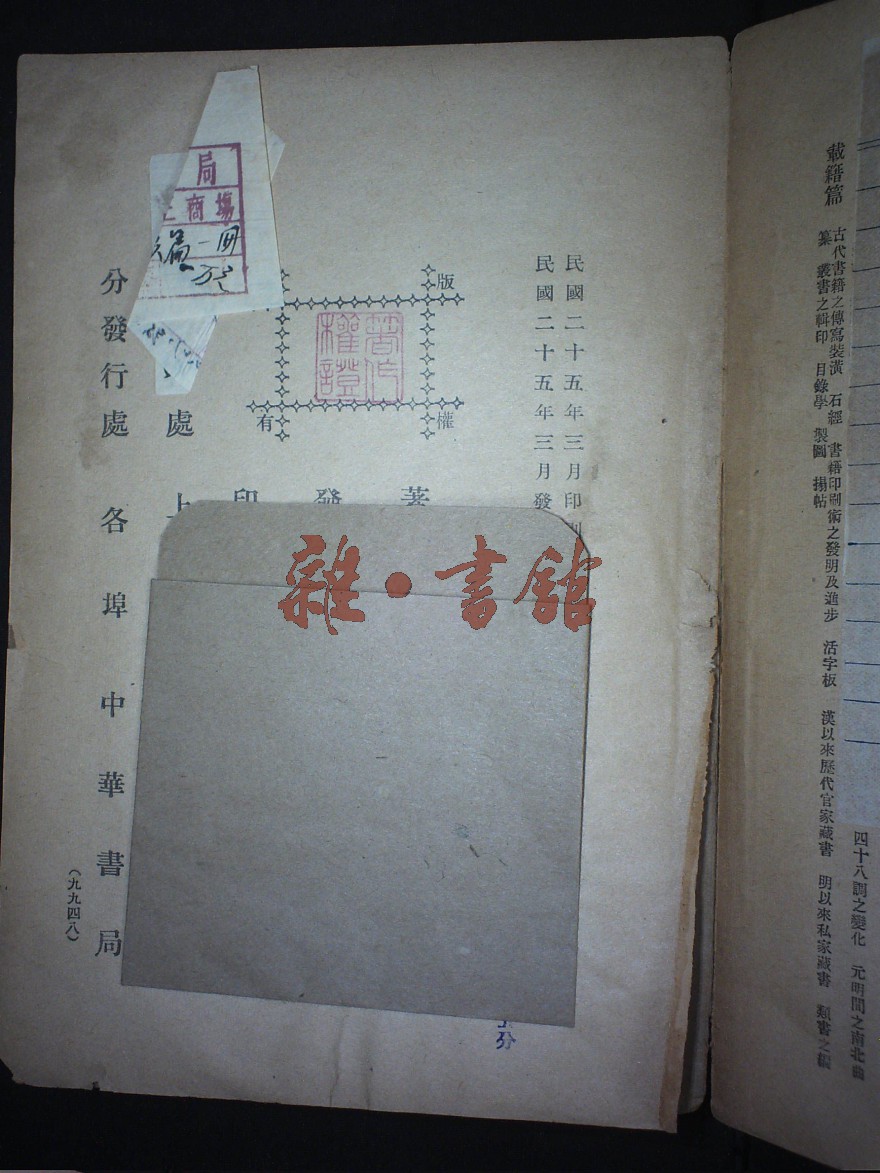 載籍篇 古代書籍之傳寫裝潢 石經 書籍印刷術之發明及進步 活字板 漢以來歷代官家藏書 明以來私家藏書 類書之編
纂 叢書之輯印 目錄學 製圖 搨帖
四十八調之變化 元明間之南北曲
民國二十五年三月印
民國二十五年三月發
版
權
有
著作
權證
著
發
印
處 上
分發行處 各埠中華書局
(九九四八)
分
局
商場
篇一冊
雜·書館